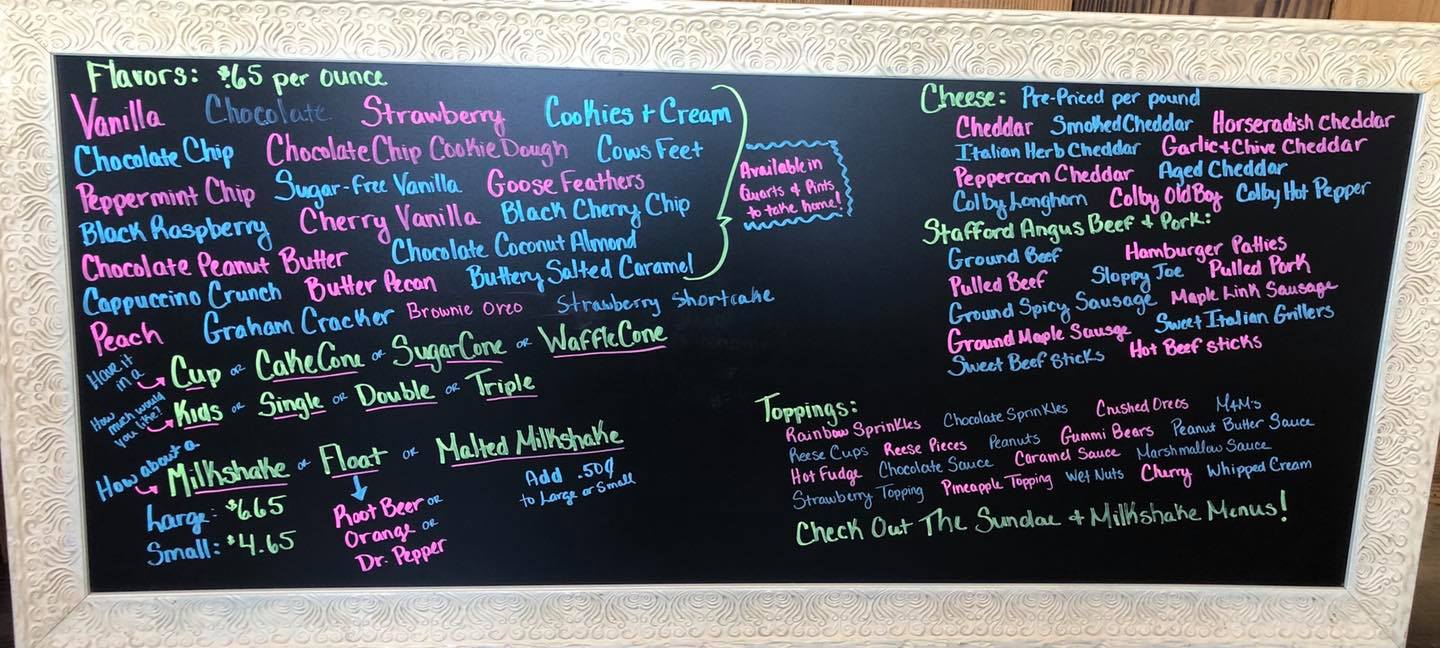 Flavors: $.65 per ounce
Vanilla Chocolate Strawberry Cookies + Cream
Chocolate Chip Chocolate Chip Cookie Dough Cows Feet
Peppermint Chip Sugar-Free Vanilla Goose Feathers
Black Raspberry Cherry Vanilla Black Cherry Chip
Chocolate Peanut Butter Chocolate Coconut Almond
Cappuccino Crunch Butter Pecan Buttery Salted Caramel
Peach Graham Cracker Brownie Oreo Strawberry Shortcake
Available in
Quarts & Pints
to take home!
Have it
in a
Cup or Cake Cone or Sugar Cone or Waffle Cone
How
much would
you like?
Kids or Single or Double or Triple
How about a
Milkshake or Float or Malted Milkshake
Large: $6.65
Small: $4.65
Root Beer or
Orange or
Dr. Pepper
Add .50¢
to Large or Small
Cheese: Pre-Priced per pound
Cheddar Smoked Cheddar Horseradish Cheddar
Italian Herb Cheddar Garlic + Chive Cheddar
Peppercorn Cheddar Aged Cheddar
Colby Longhorn Colby Old Boy Colby Hot Pepper
Stafford Angus Beef & Pork:
Ground Beef Hamburger Patties
Pulled Beef Sloppy Joe Pulled Pork
Ground Spicy Sausage Maple Link Sausage
Ground Maple Sausge Sweet Italian Grillers
Sweet Beef Sticks Hot Beef Sticks
Toppings:
Rainbow Sprinkles Chocolate Sprinkles Crushed Oreos M+M's
Reese Cups Reese Pieces Peanuts Gummi Bears Peanut Butter Sauce
Hot Fudge Chocolate Sauce Caramel Sauce Marshmallow Sauce
Strawberry Topping Pineapple Topping Wet Nuts Cherry Whipped Cream
Check Out The Sundae & Milkshake Menus!